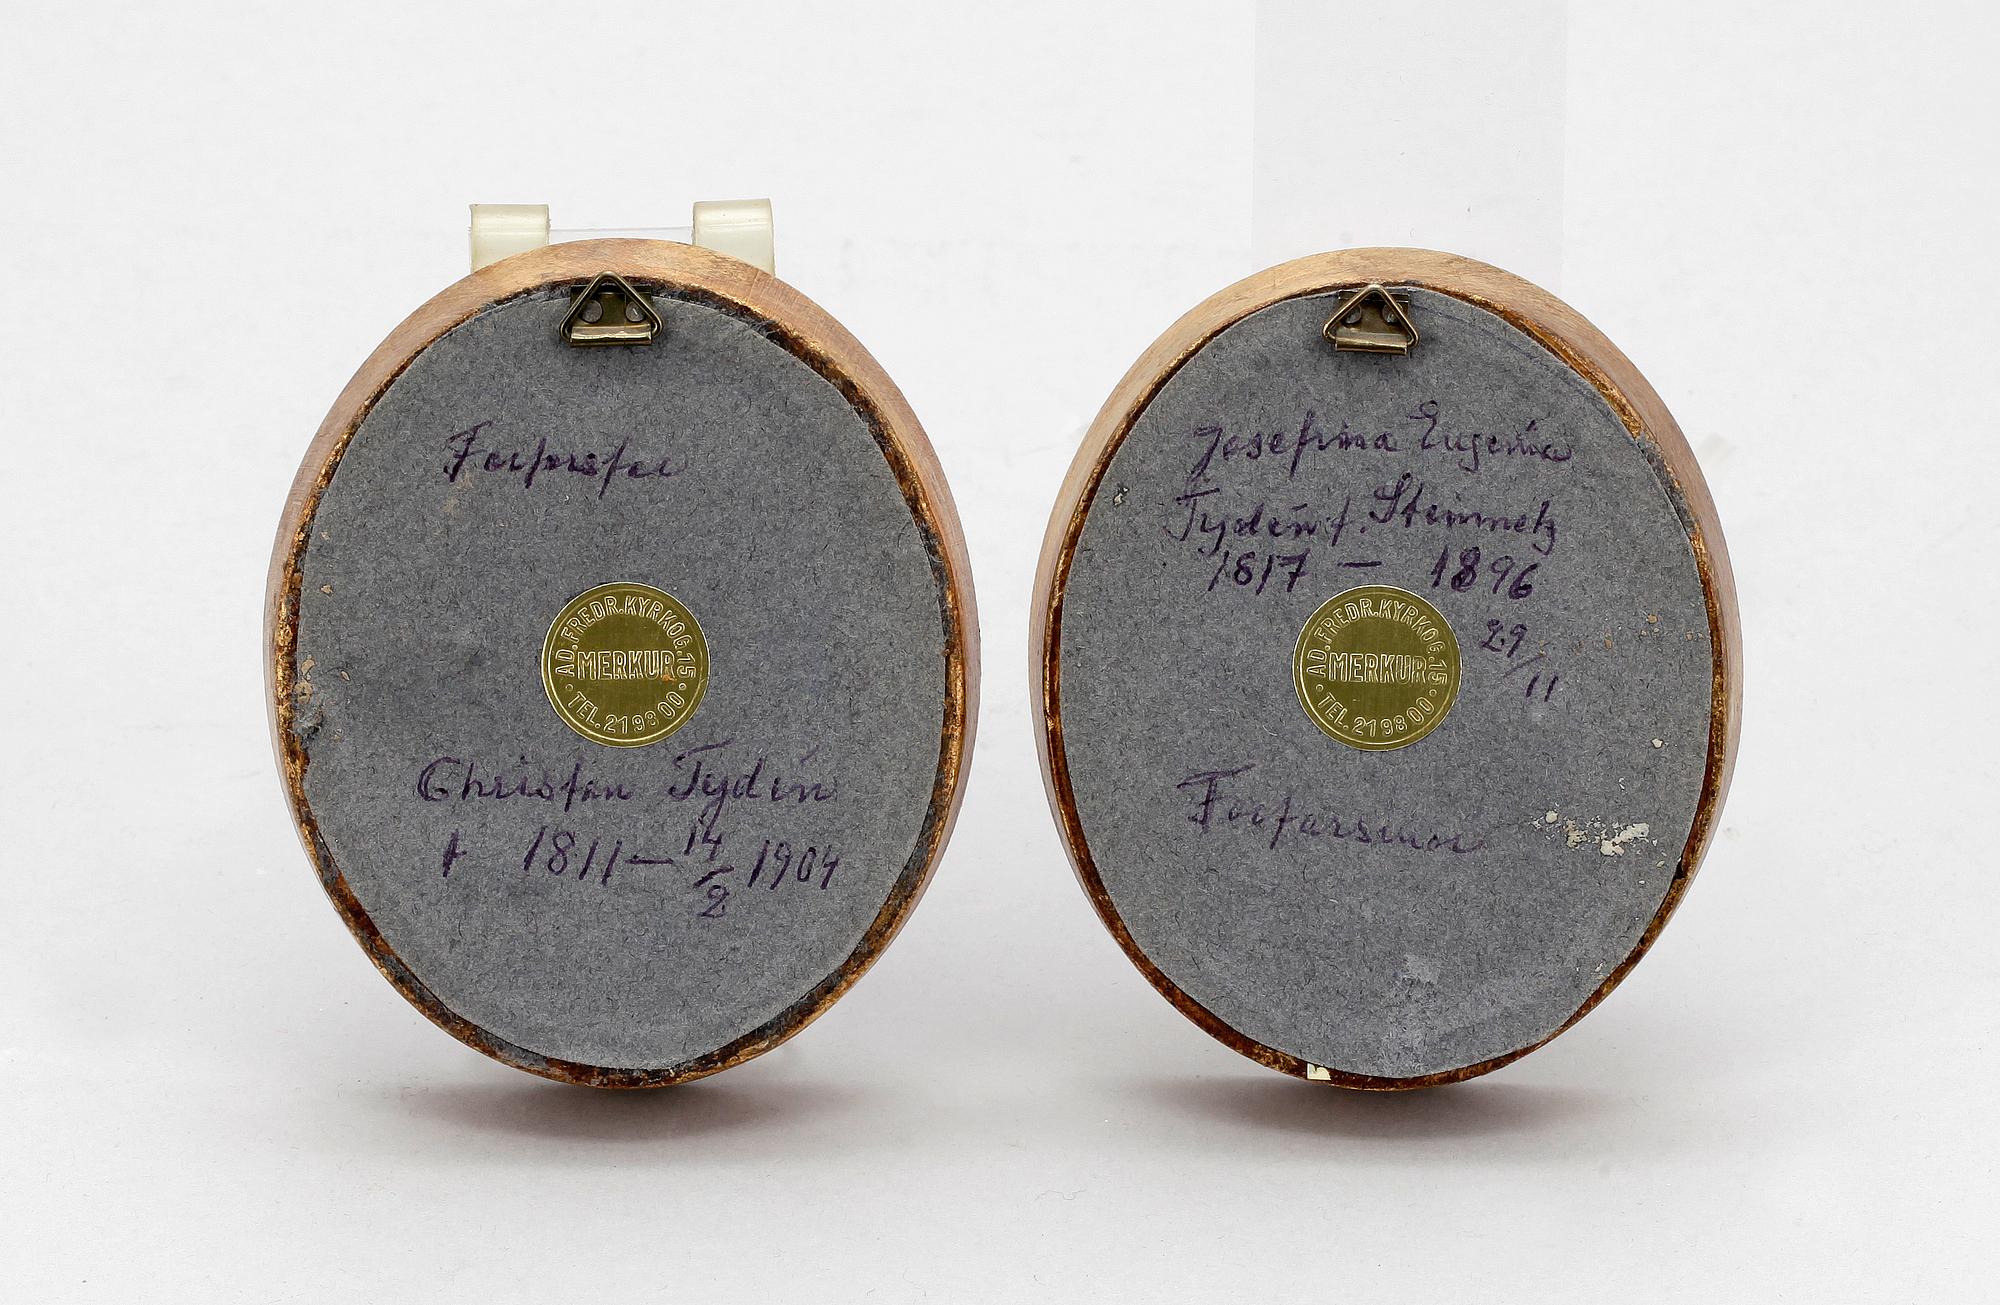 Farfarsfar
AD. FREDR. KYRKOG. 15
MERKUR
TEL. 21 98 00
Christian Tydén
1811 — 14/2 1904
Josefina Eugenia
Tydén f. Steinmetz
1817 — 1896
29/11
AD. FREDR. KYRKOG. 15
MERKUR
TEL. 21 98 00
Farfarsmor